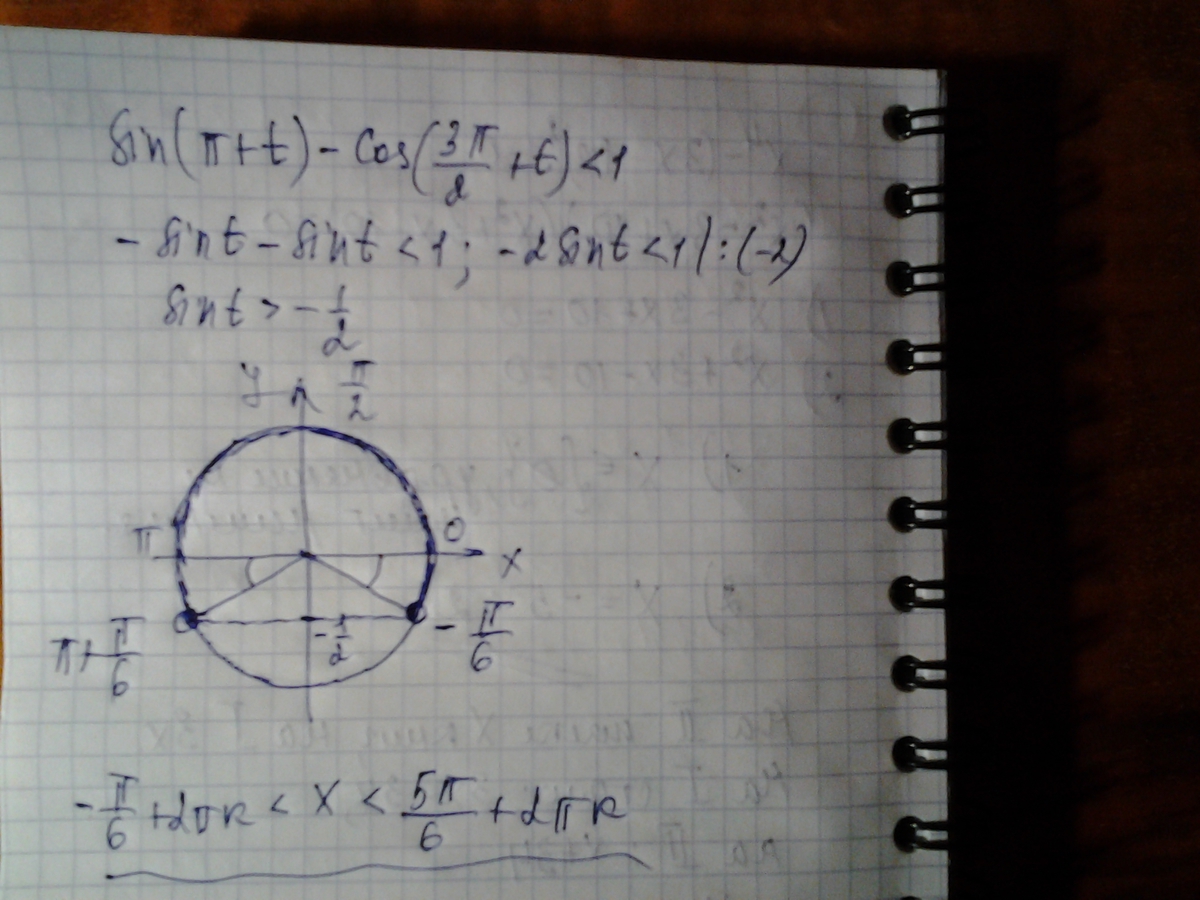 sin(π+t) - cos(3π/2 +t) < 1
- sint - sint < 1; -2sint < 1 |:(-2)
sint > - 1/2
y π/2
π 0 x
π+ π/6 - 1/2 - π/6
- π/6 + 2πk < x < 5π/6 + 2πk